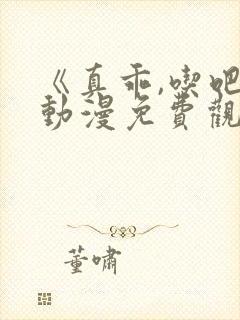 《真乖,喫吧
動漫免費觀
董嘯